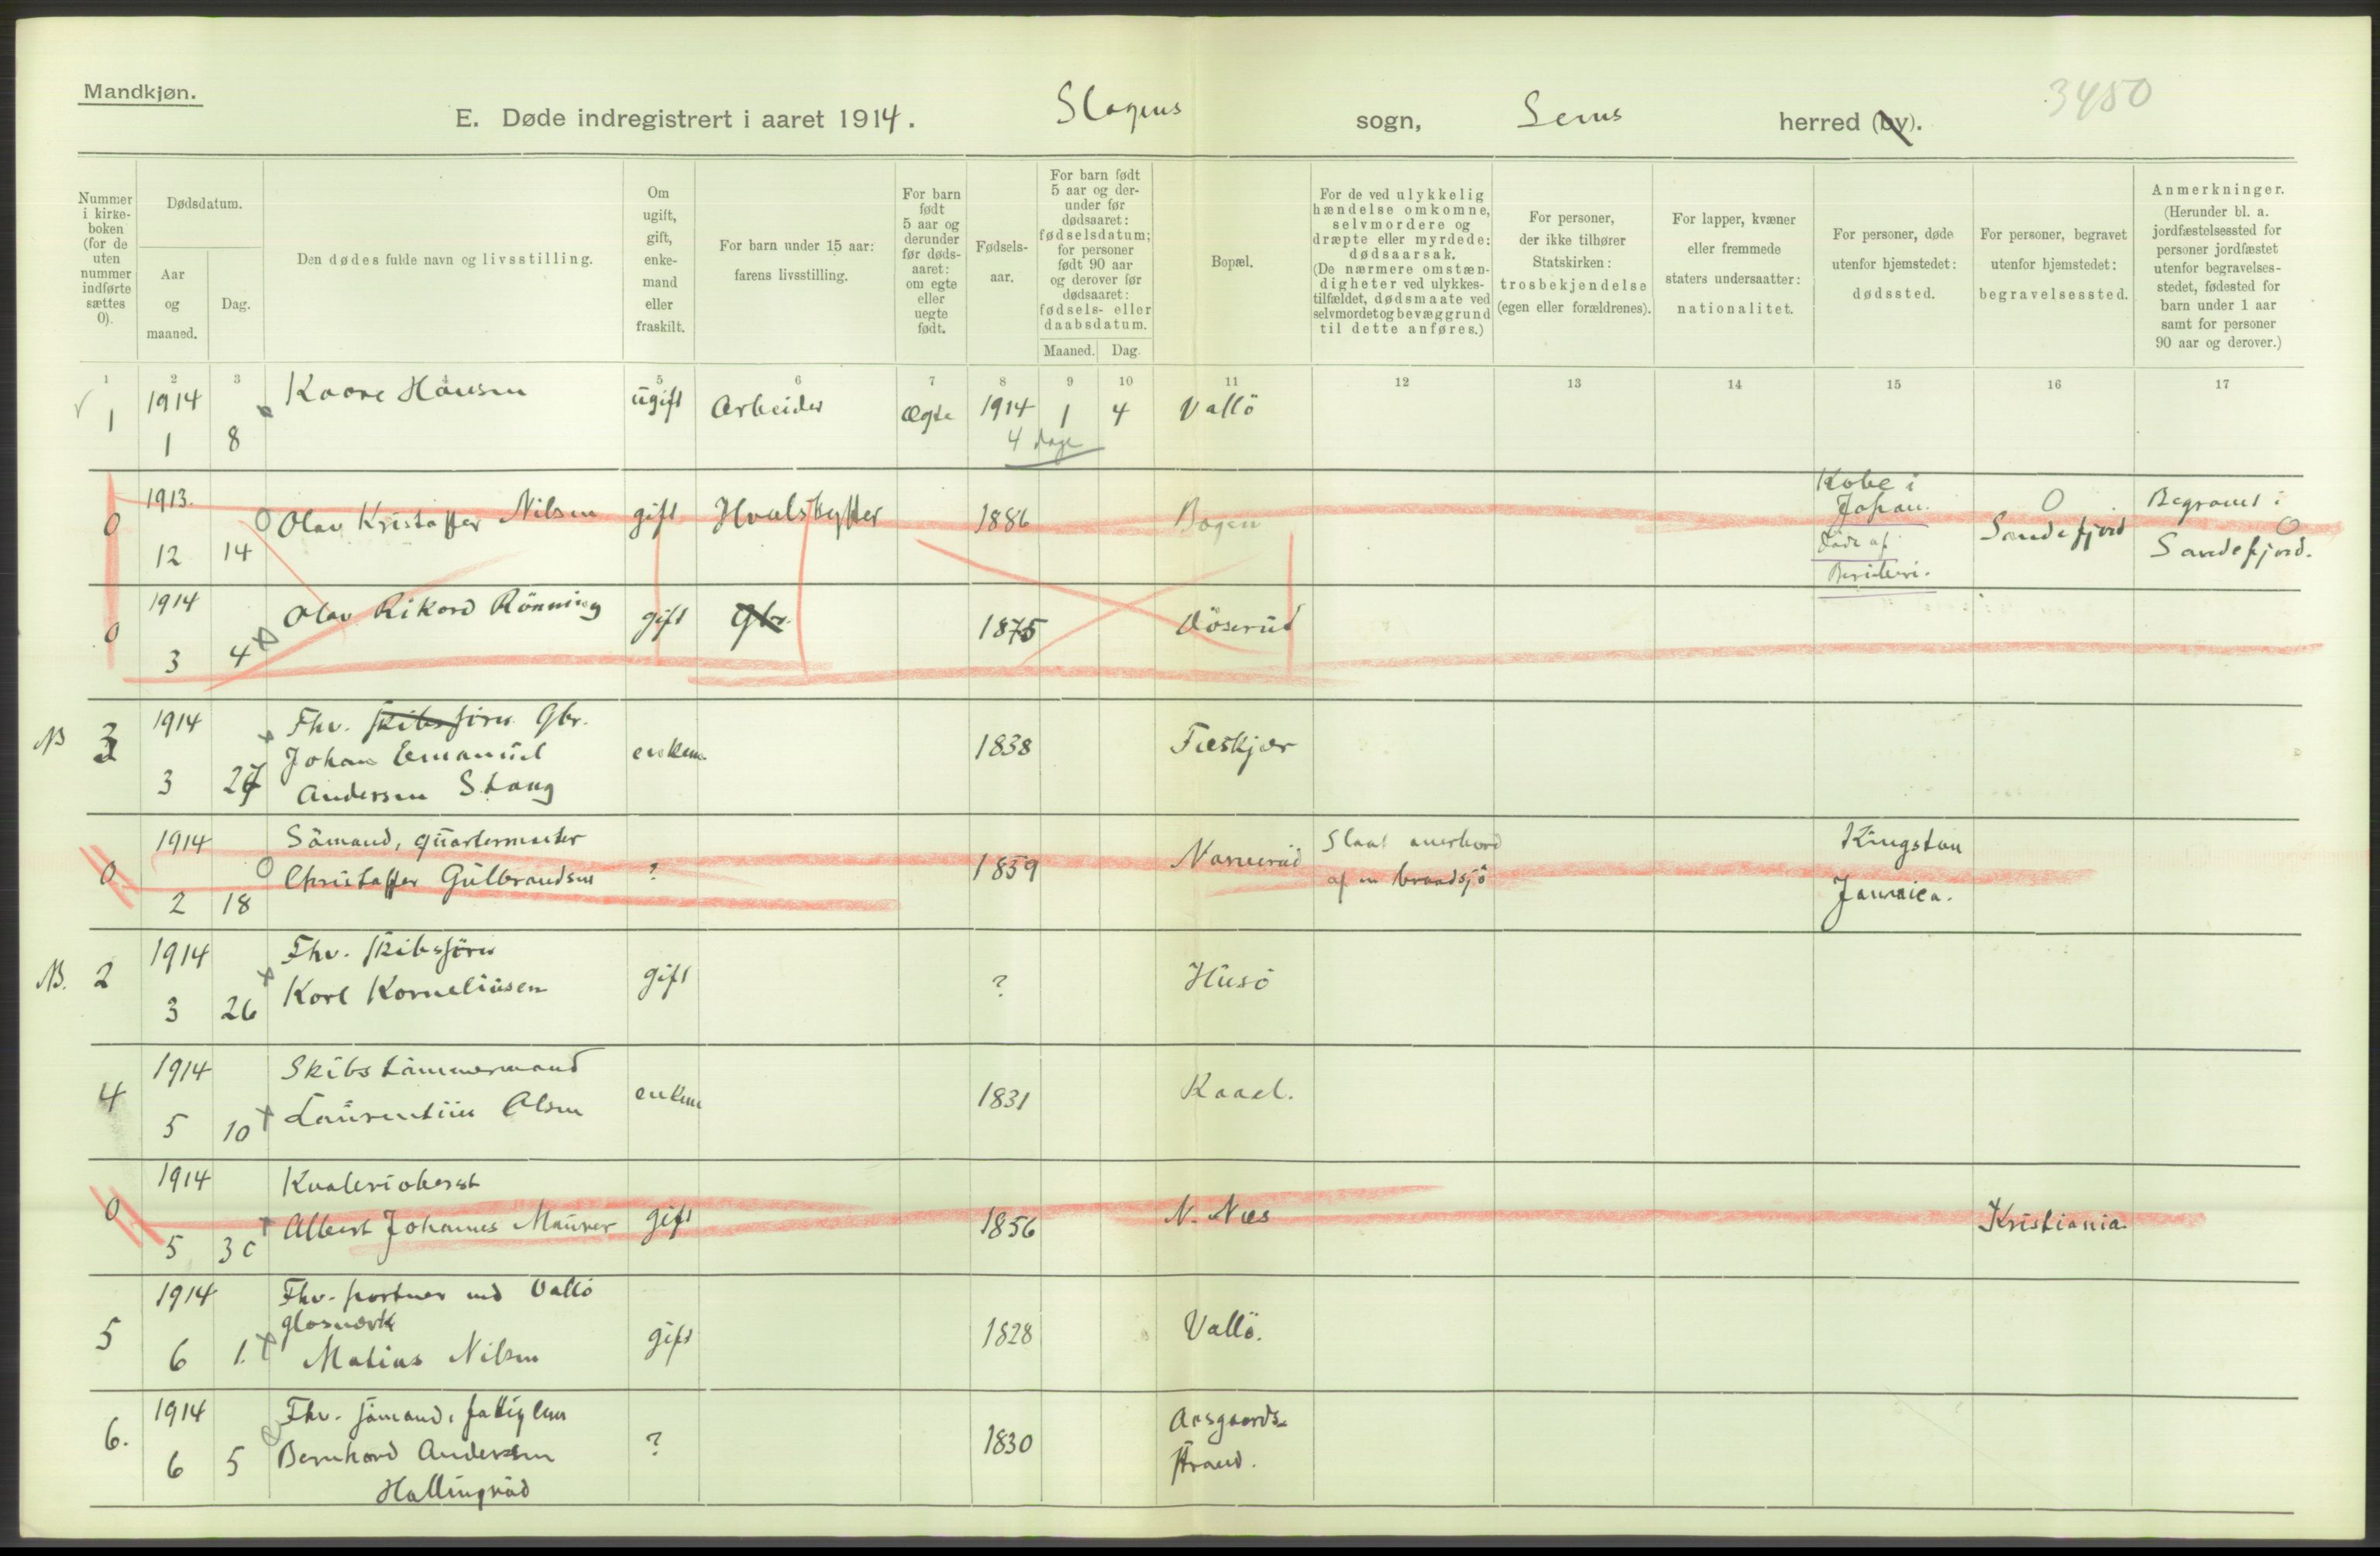 Mandkjøn.
3450
E. Døde indregistrert i aaret 1914. Slagens sogn, Sems herred (by).
Nummer i kirkeboken (for de uten nummer indførte sættes 0).
Dødsdatum.
Aar og maaned.
Dag.
Den dødes fulde navn og livsstilling.
Om ugift, gift, enkemand eller fraskilt.
For barn under 15 aar: farens livsstilling.
For barn født 5 aar og derunder før dødsaaret: om egte eller uegte født.
Fødselsaar.
For barn født 5 aar og derunder før dødsaaret: fødselsdatum; for personer født 90 aar og derover før dødsaaret: fødsels- eller daabsdatum.
Maaned. Dag.
Bopæl.
For de ved ulykkelig hændelse omkomne, selvmordere og dræpte eller myrdede: dødsaarsak. (De nærmere omstændigheter ved ulykkestilfældet, dødsmaate ved selvmordet og bevæggrund til dette anføres.)
For personer, der ikke tilhører Statskirken: trosbekjendelse (egen eller forældrenes).
For lapper, kvæner eller fremmede staters undersaatter: nationalitet.
For personer, døde utenfor hjemstedet: dødssted.
For personer, begravet utenfor hjemstedet: begravelsessted.
Anmerkninger. (Herunder bl. a. jordfæstelsessted for personer jordfæstet utenfor begravelsesstedet, fødested for barn under 1 aar samt for personer 90 aar og derover.)
1 2 3 5 6 7 8 9 10 11 12 13 14 15 16 17
1 1914 1 8 Kaare Hansen ugift Arbeider Ægte 1914 1 4 Vallö
4 dage
0 1913. 12 14 Olav Kristoffer Nilsen gift Hvalskytter 1886 Bogen Kobe i Japan. Døde af Beriberi. Sandefjord Begravet i Sandefjord.
0 1914 3 4 Olav Rikard Rönning gift Gbr. 1875 Döserud
NB 3 1914 3 27 Fhv. skibsförer Gbr.
Johan Emanuel
Andersen Stang enkem. 1838 Fæskjær
0 1914 2 18 Sömand, quartermaster
Christoffer Gulbrandsen ? 1859 Narverød Slaat overbord
af en braadsjö Kingston
Jamaica.
NB. 2 1914 3 26 Fhv. skibsförer
Karl Korneliusen gift ? Husö
4 1914 5 10 Skibstömmermand
Laurentius Olsen enkem 1831 Kaael.
0 1914 5 30 Kvalerioberst
Albert Johannes Maurer gift 1856 N. Næs Kristiania
5 1914 6 1. Fhv. portner ved Vallö
glasverk
Matias Nilsen gift 1828 Vallö.
6. 1914 6 5 Fhv. sömand, fattiglem
Bernhard Andersen
Hallingrød ? 1830 Aasgaards-
strand.